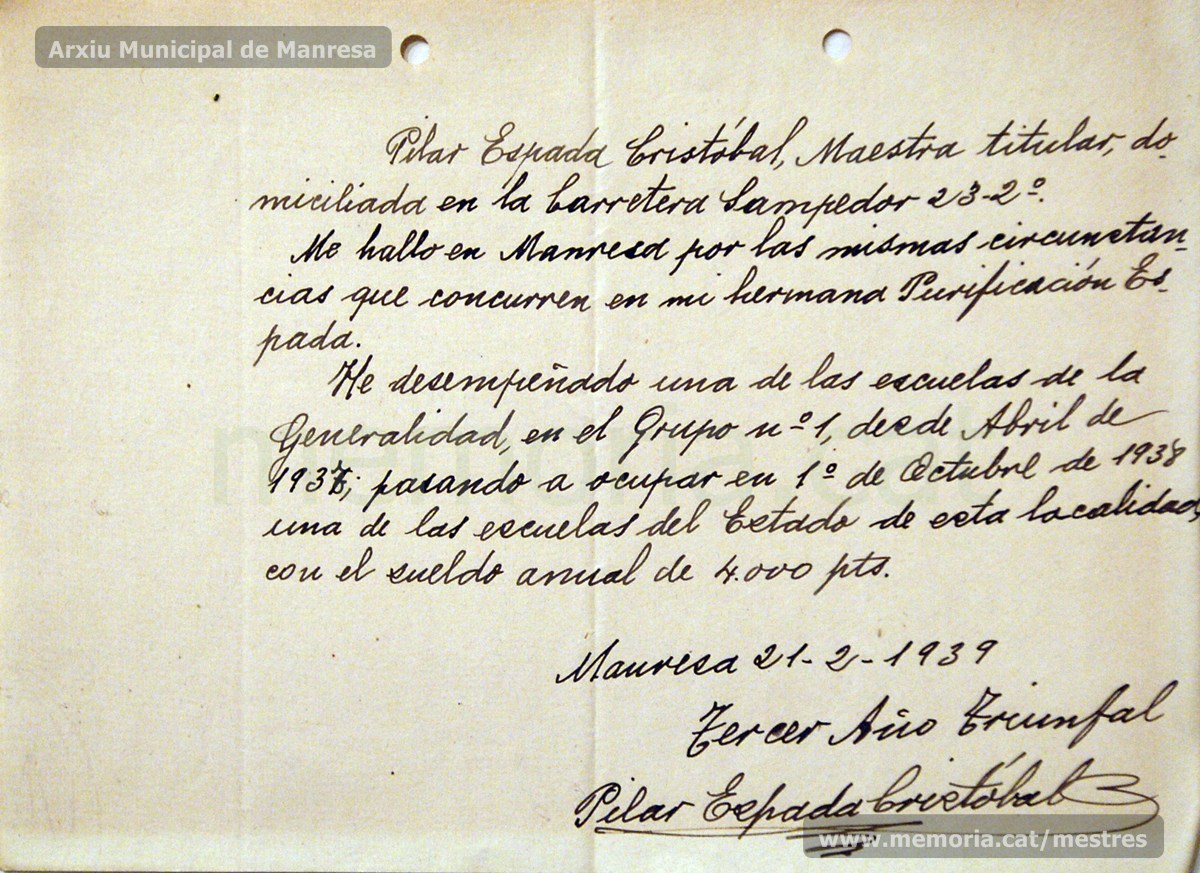 Arxiu Municipal de Manresa
Pilar Espada Cristóbal, Maestra titular, do-
miciliada en la Carretera Sampedor 23-2º.
Me hallo en Manresa por las mismas circunctan-
cias que concurren en mi hermana Purificación Es-
pada.
He desempeñado una de las escuelas de la
Generalidad, en el Grupo nº 1, desde Abril de
1937; pasando a ocupar en 1º de Octubre de 1938
una de las escuelas del Estado de esta localidad,
con el sueldo anual de 4.000 pts.
Manresa 21-2-1939
Tercer Año Triunfal
Pilar Espada Cristóbal
www.memoria.cat/mestres